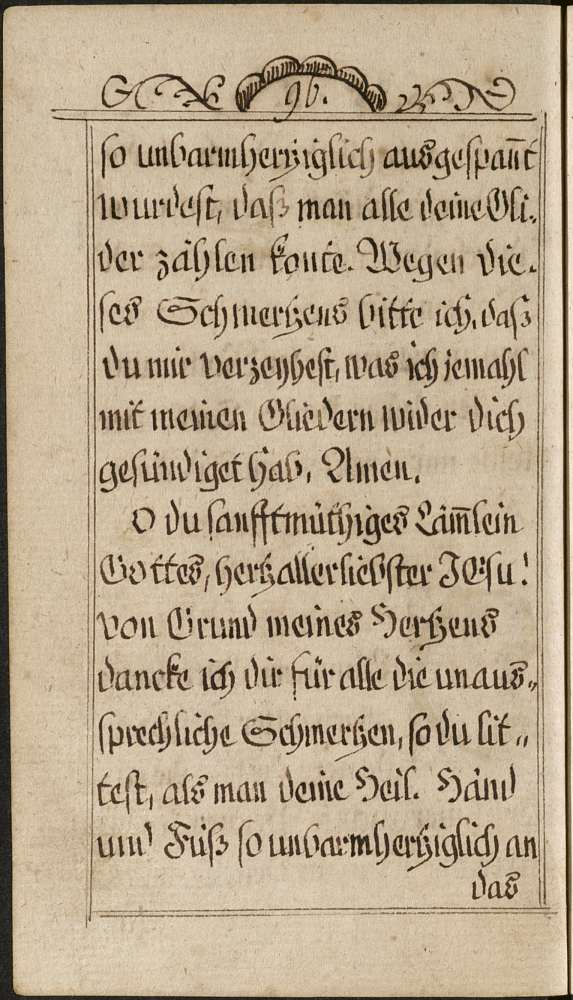 96.
so unbarmhertziglich ausgespañt
wurdest, daß man alle deine Gli-
der zählen konte. Wegen die-
ses Schmertzens bitte ich, daß
du mir verzeyhest, was ich jemahl
mit meinen Gliedern wider dich
gesündiget hab, Amen.
O du sanfftmüthiges Lam̃lein
Gottes, hertzallerliebster JEsu!
von Grund meines Hertzens
dancke ich dir für alle die unaus-
sprechliche Schmertzen, so du lit-
test, als man deine Heil. Händ
und Füß so unbarmhertziglich an
das